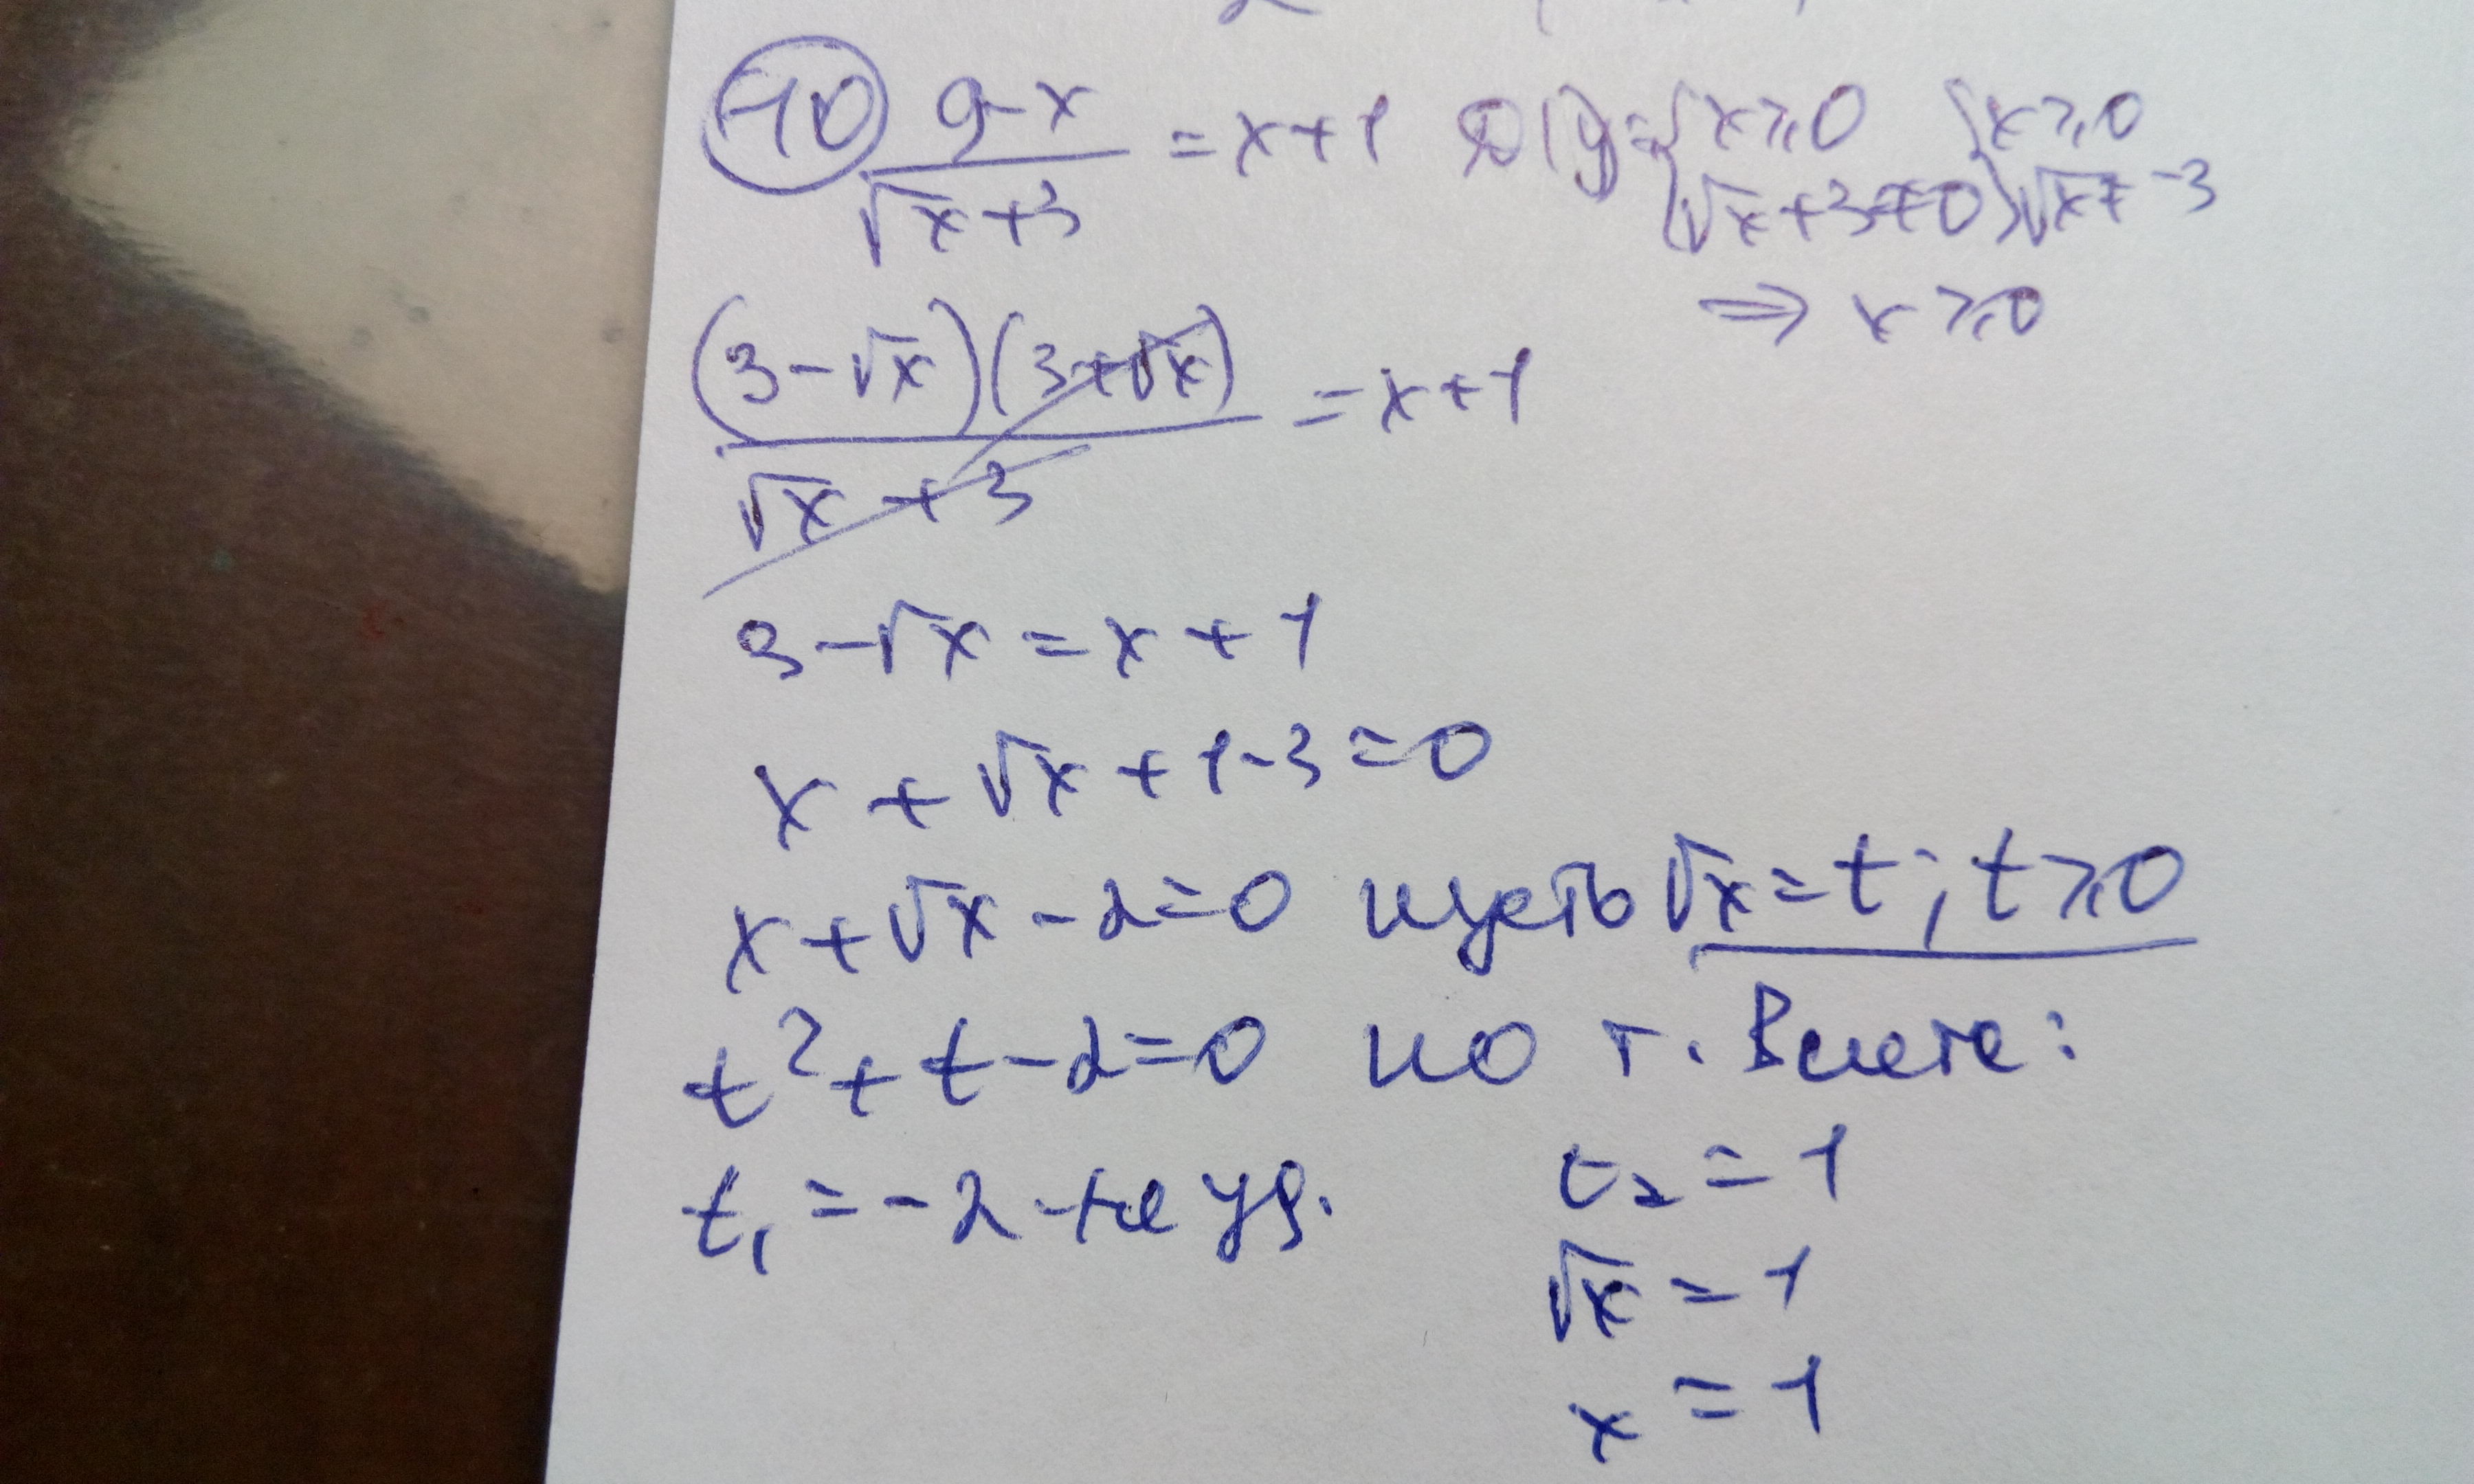 10 (9-x)/(√x+3) = x+1 D(y)= {x≥0 {x≥0
{√x+3≠0 {√x≠-3
⇒ x≥0
(3-√x)(3+√x)/(√x+3) = x+1
3-√x=x+1
x+√x+1-3=0
x+√x-2=0 пусть √x=t; t≥0
t²+t-2=0 по т. Виета:
t₁=-2-не уд. t₂=1
√x=1
x=1